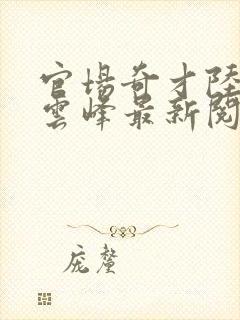 官場奇才陸
雲峰最新閱
庞釐